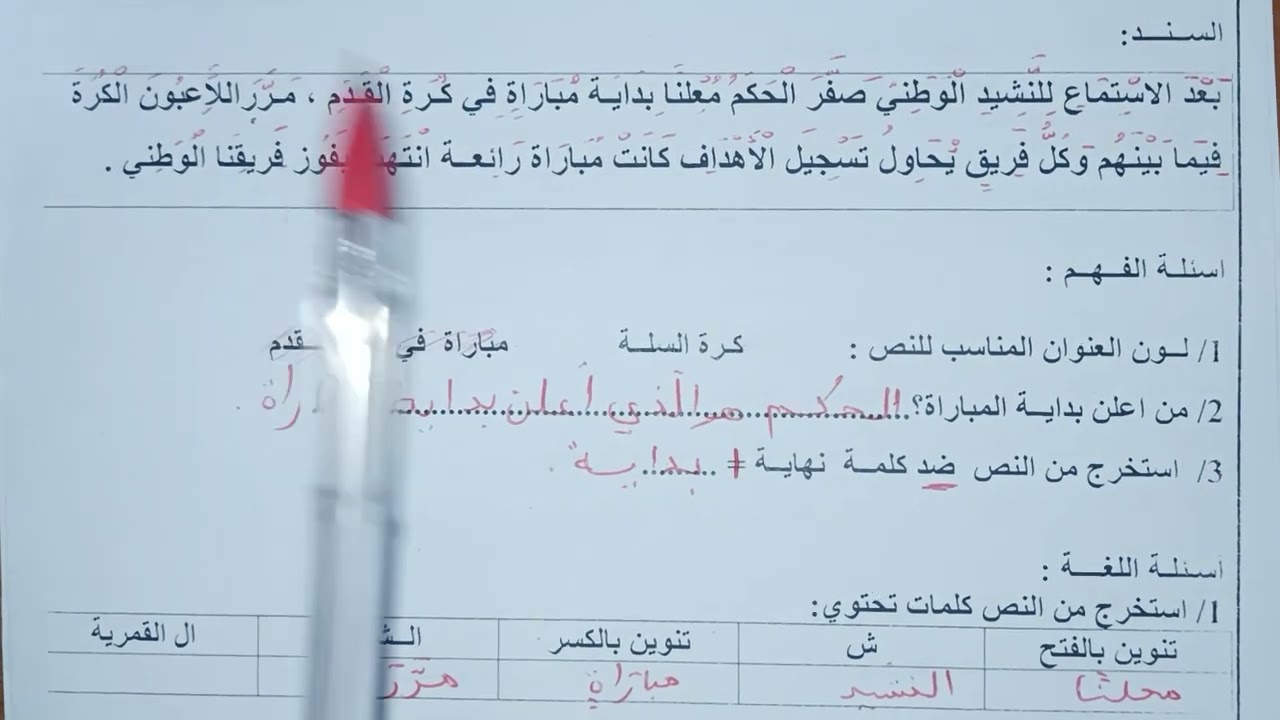 السند:
بَعْدَ الاسْتِمَاعِ لِلنَّشِيدِ الْوَطِنيّ صَفَّرَ الْحَكَمُ مُعْلنَا بِدَايَة مُبَارَاةٍ في كُرَةِ الْقَدَمِ ، مَرَّرَ اللاَّعِبُونَ الْكُرَةَ
فِيمَا بَيْنَهُم وَكُلُّ فَرِيقٍ يُحَاوِلُ تَسْجِيل الْأَهْدَاف كَانَتْ مُبَارَاة رَائِعَة بِفَوز فَرِيقِنا الْوَطِني .
اسئلة الفهم :
1/ لون العنوان المناسب للنص : كرة السلة مباراة في
2/ من اعلن بداية المباراة؟ الحكم هو الّذي أعلن
3/ استخرج من النص ضد كلمة نهاية ≠ بداية .
أسئلة اللغة :
1/ استخرج من النص كلمات تحتوي:
تنوين بالفتح ش تنوين بالكسر ال القمرية
معلنًا النشيد مباراةٍ مرّر